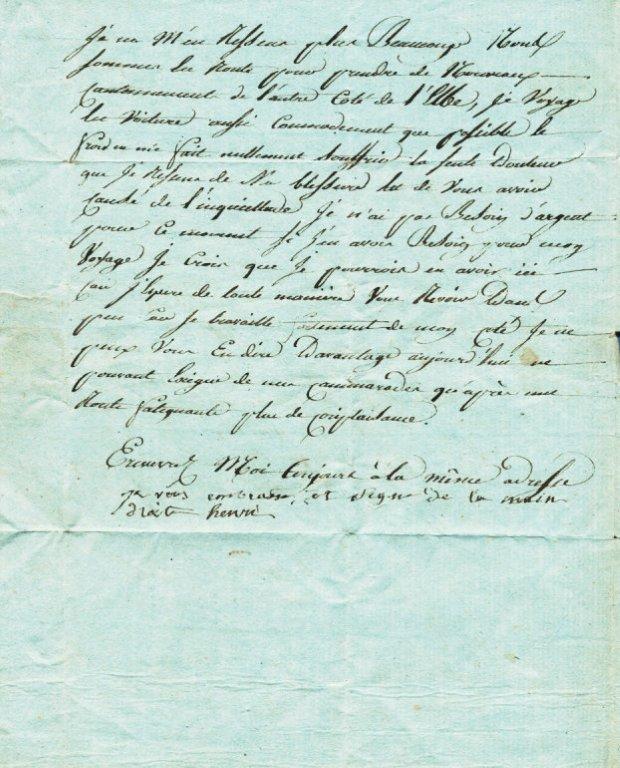 Je ne M'en Ressens plus Beaucoup Nous
sommes en Route pour prendre de Nouveaux
cantonnement de l'autre Coté de l'Elbe, je Voyage
en Voiture aussi Commodement que possible le
froid ne me fait nullement Souffrir la seule Douleur
que Je Resens de Ma blessure est de Vous avoir
causé de l'inquiettude Je n'ai pas Besoin d'argent
pour ce moment Si J'en avois Besoin pour mon
Voyage Je Crois que Je pourrois en avoir ici
car J'Espere de toute maniere Vous Revoir Dans
peu car Je travaille de mon coté Je ne
peux Vous En dire Davantage aujourd'hui ne
pouvant Exiger de mes Cammarades qu'après une
Route fatiguante plus de complaisance.
Ecrivez Moi toujours à la même adresse
je vous embrasse et signe de la main
droit henri